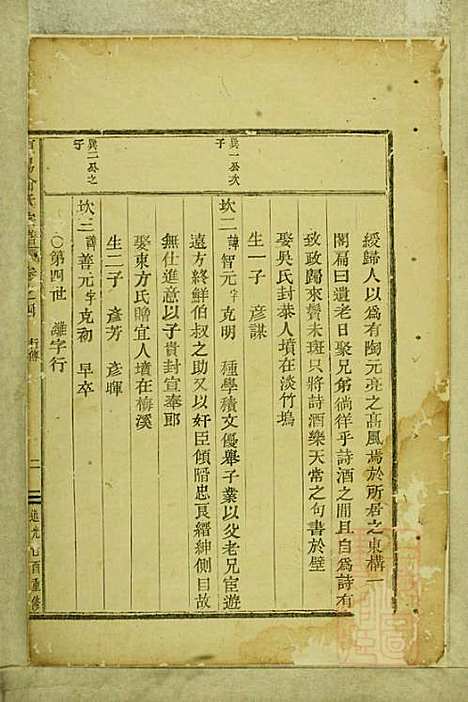 綬歸人以為有陶元亮之高風焉於所君之東構一
閣扁曰遺老日聚兄弟徜徉乎詩酒之間且自為詩有
致政歸來鬢未斑只將詩酒樂天常之句書於壁
娶吳氏封恭人墳在淡竹塢
生一子 彥謀
巽一公次子
坎二 諱智元 字克明 種學積文優舉子業以父老兄宦遊
遠方終鮮伯叔之助又以奸臣傾陷忠良縉紳側目故
無仕進意以子貴封宣奉郎
娶東方氏贈宜人墳在梅溪
生二子 彥芳 彥暉
巽二公之子
坎三 諱善元 字克初 早卒
○第四世 離字行
卷之四 行傳 二 道光乙酉重修